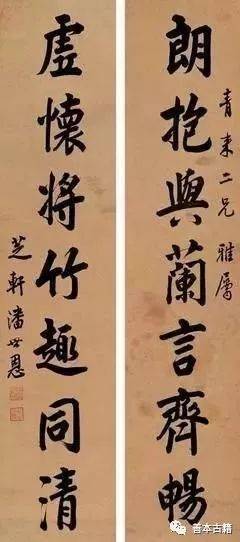 朗抱與蘭言齊暢
青來二兄 雅屬
虛懷將竹趣同清
芝軒潘世恩
善本古籍